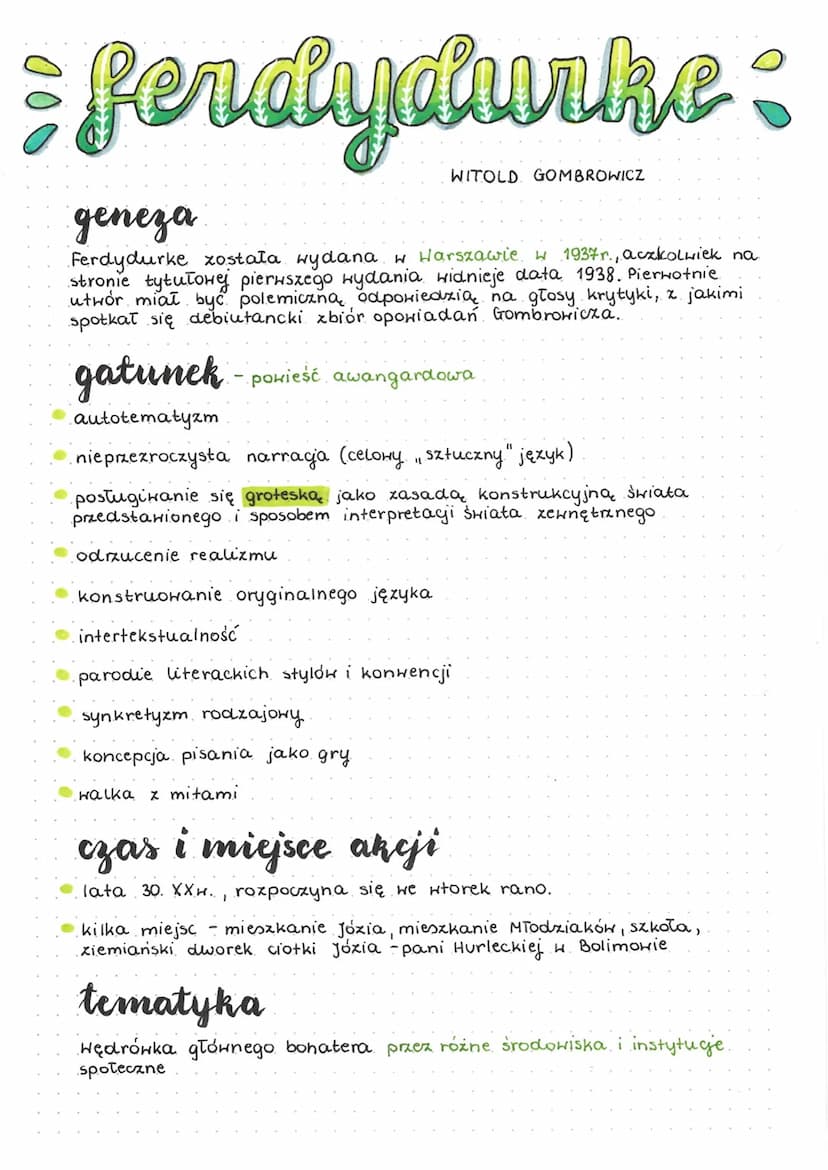 ferdydurke
WITOLD GOMBROWICZ
geneza
Ferdydurke została wydana w Warszawie w 1937r., aczkolwiek na
stronie tytułowej pierwszego wydania widnieje data 1938. Pierwotnie
utwór miał być polemiczną odpowiedzią na głosy krytyki, z jakimi
spotkał się debiutancki zbiór opowiadań Gombrowicza.
gatunek - powieść awangardowa
autotematyzm
nieprzezroczysta narracja (celowy „sztuczny" język)
posługiwanie się groteską jako zasadą konstrukcyjną świata
przedstawionego i sposobem interpretacji świata zewnętrznego
odrzucenie realizmu
konstruowanie oryginalnego języka
intertekstualność
parodie literackich stylów i konwencji
synkretyzm rodzajowy
koncepcja pisania jako gry
walka z mitami
czas i miejsce akcji
lata 30. XXw., rozpoczyna się we wtorek rano.
kilka miejsc - mieszkanie Józia, mieszkanie Młodziaków, szkoła,
ziemiański dworek ciotki Józia - pani Hurleckiej w Bolimowie
tematyka
Wędrówka głównego bohatera przez różne środowiska i instytucje
społeczne